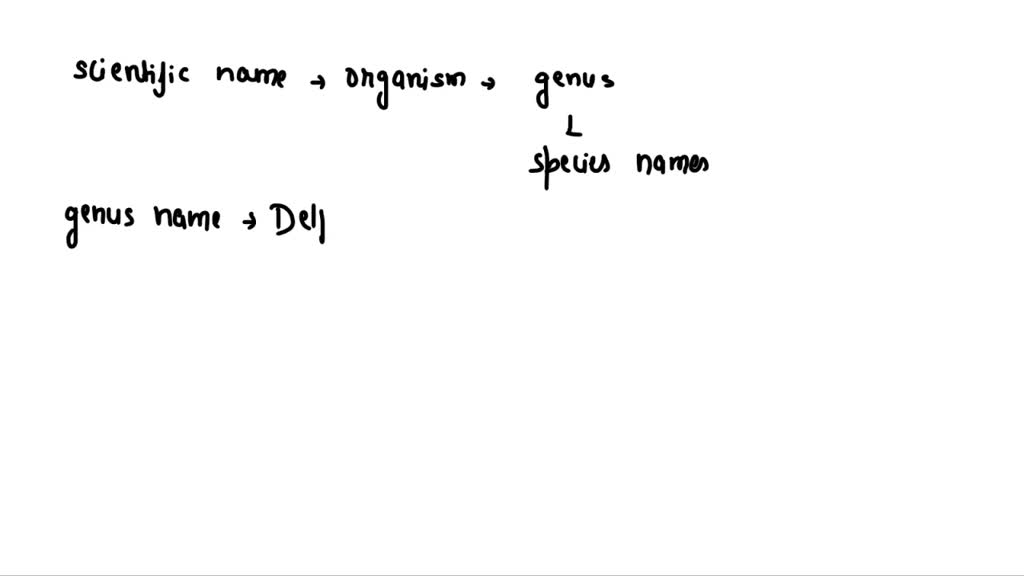 scientific name → organism → genus
L
species names
genus name → Delf